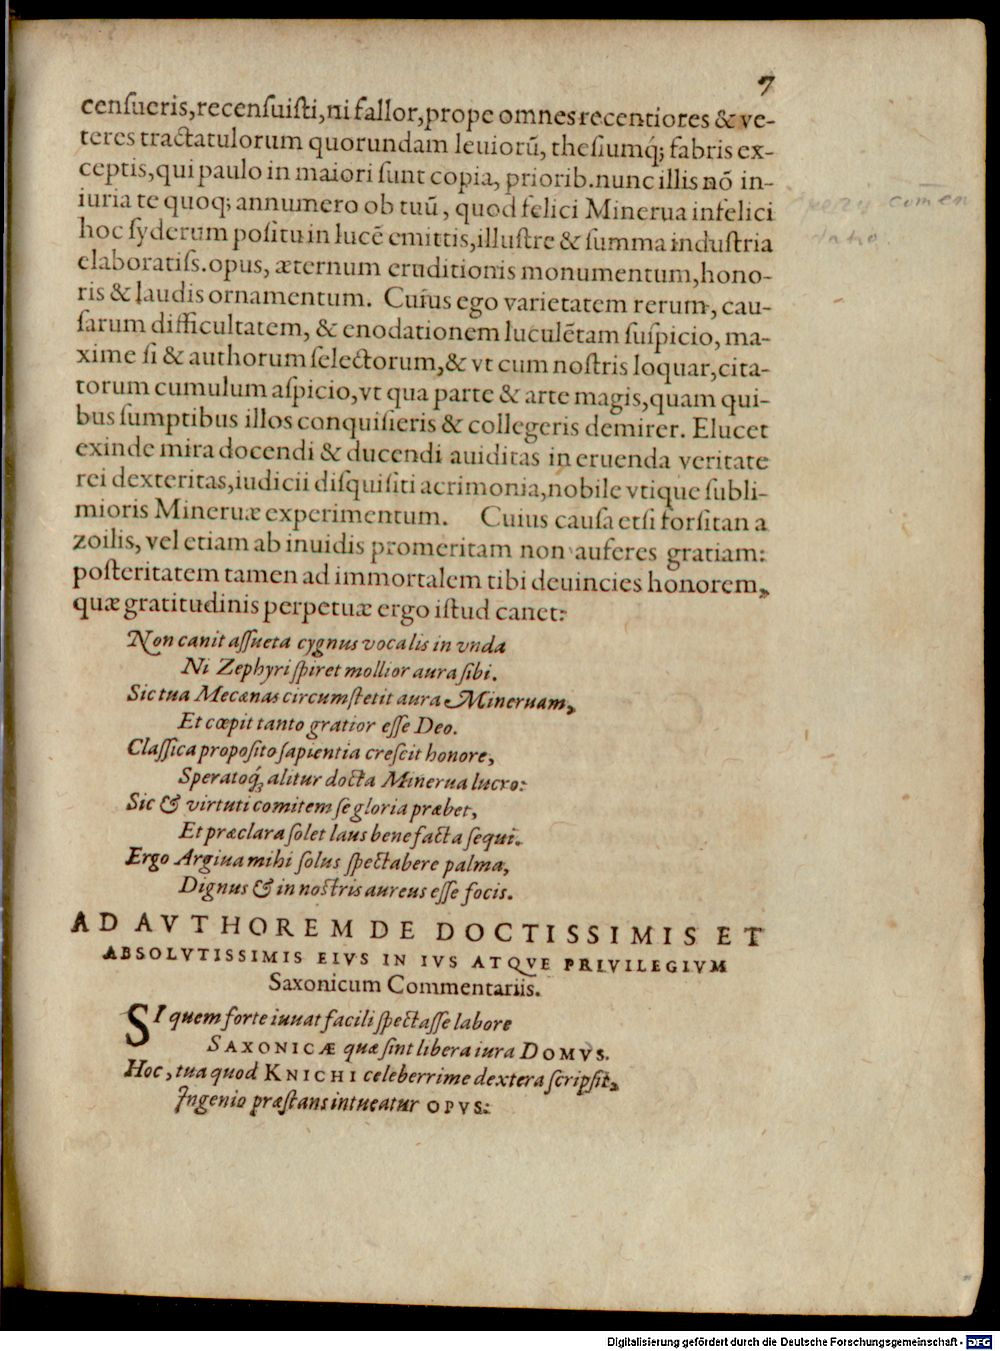 7
cenſueris,recenſuiſti,ni fallor,prope omnes recentiores & ve-
teres tractatulorum quorundam leuiorũ, theſiumq́; fabris ex-
ceptis,qui paulo in maiori ſunt copia, priorib.nunc illis nõ in-
iuria te quoq; annumero ob tuũ, quod felici Minerua infelici
hoc ſyderum poſitu in lucẽ emittis,illuſtre & ſumma induſtria
elaboratiſs.opus, æternum eruditionis monumentum,hono-
ris & laudis ornamentum. Cuius ego varietatem rerum, cau-
ſarum difficultatem, & enodationem luculẽtam ſuſpicio, ma-
xime ſi & authorum ſelectorum,& vt cum noſtris loquar,cita-
torum cumulum aſpicio,vt qua parte & arte magis,quam qui-
bus ſumptibus illos conquiſieris & collegeris demirer. Elucet
exinde mira docendi & ducendi auiditas in eruenda veritate
rei dexteritas,iudicii diſquiſiti acrimonia,nobile vtique ſubli-
mioris Mineruæ experimentum. Cuius cauſa etſi forſitan a
zoilis, vel etiam ab inuidis promeritam non auferes gratiam:
poſteritatem tamen ad immortalem tibi deuincies honorem,
quæ gratitudinis perpetuæ ergo iſtud canet:
Non canit aſſueta cygnus vocalis in vnda
Ni Zephyri ſpiret mollior aura ſibi.
Sic tua Mecænas circumſtetit aura Mineruam,
Et cœpit tanto gratior eſſe Deo.
Claſſica propoſito ſapientia creſcit honore,
Speratoq́; alitur docta Minerua lucro:
Sic & virtuti comitem ſe gloria præbet,
Et præclara ſolet laus benefacta ſequi.
Ergo Argiua mihi ſolus ſpectabere palma,
Dignus & in noſtris aureus eſſe focis.
AD AVTHOREM DE DOCTISSIMIS ET
ABSOLVTISSIMIS EIVS IN IVS ATQVE PRIVILEGIVM
Saxonicum Commentariis.
SI quem forte iuuat facili ſpectaſſe labore
SAXONICÆ quæ ſint libera iura DOMVS.
Hoc, tua quod KNICHI celeberrime dextera ſcripſit,
Ingenio præſtans intueatur OPVS:
comen
datio.
Digitalisierung gefördert durch die Deutsche Forschungsgemeinschaft - DFG